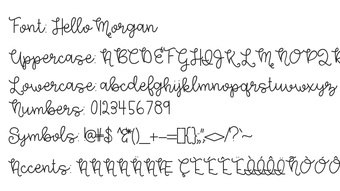 Font: Hello Morgan
Uppercase: ABCDEFGHIJKLMNOPQR
Lowercase: abcdefghijklmnopqrstuvwxyz
Numbers: 0123456789
Symbols: !@#$ ^&*()_+-=[]{};:",<>/?`~
Accents: